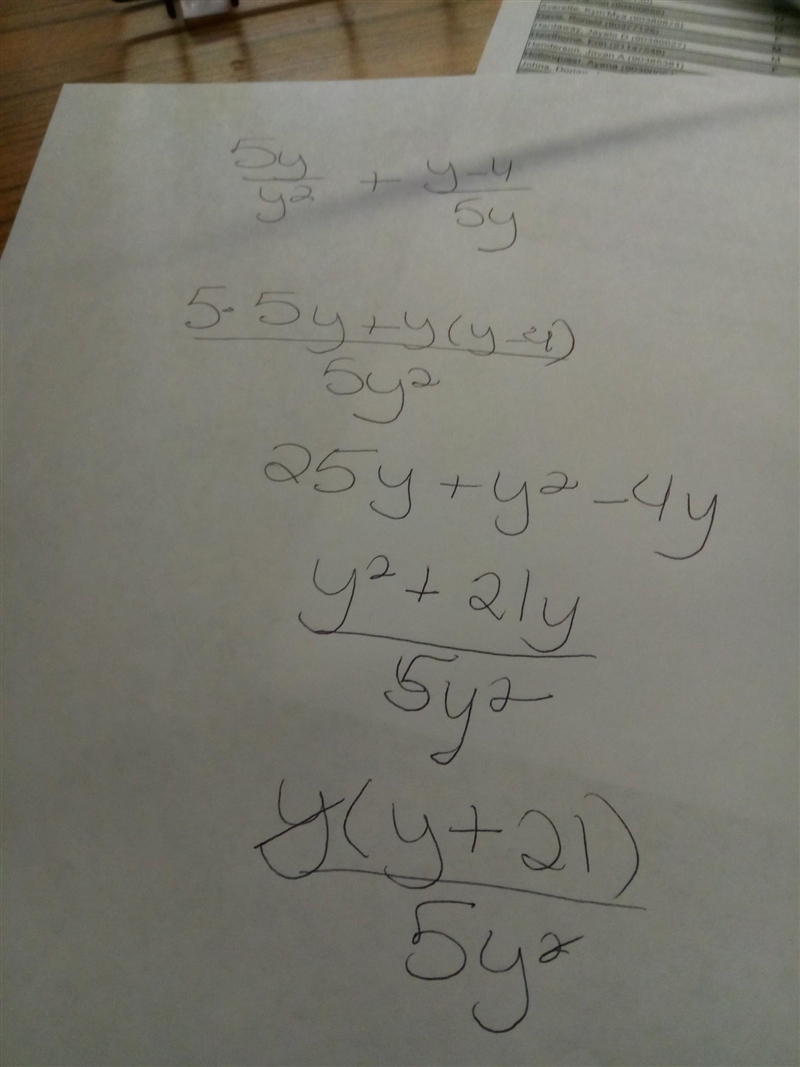 5y/y² + y-4/5y
5·5y+y(y-4)/5y²
25y+y²-4y
y²+21y/5y²
y(y+21)/5y²